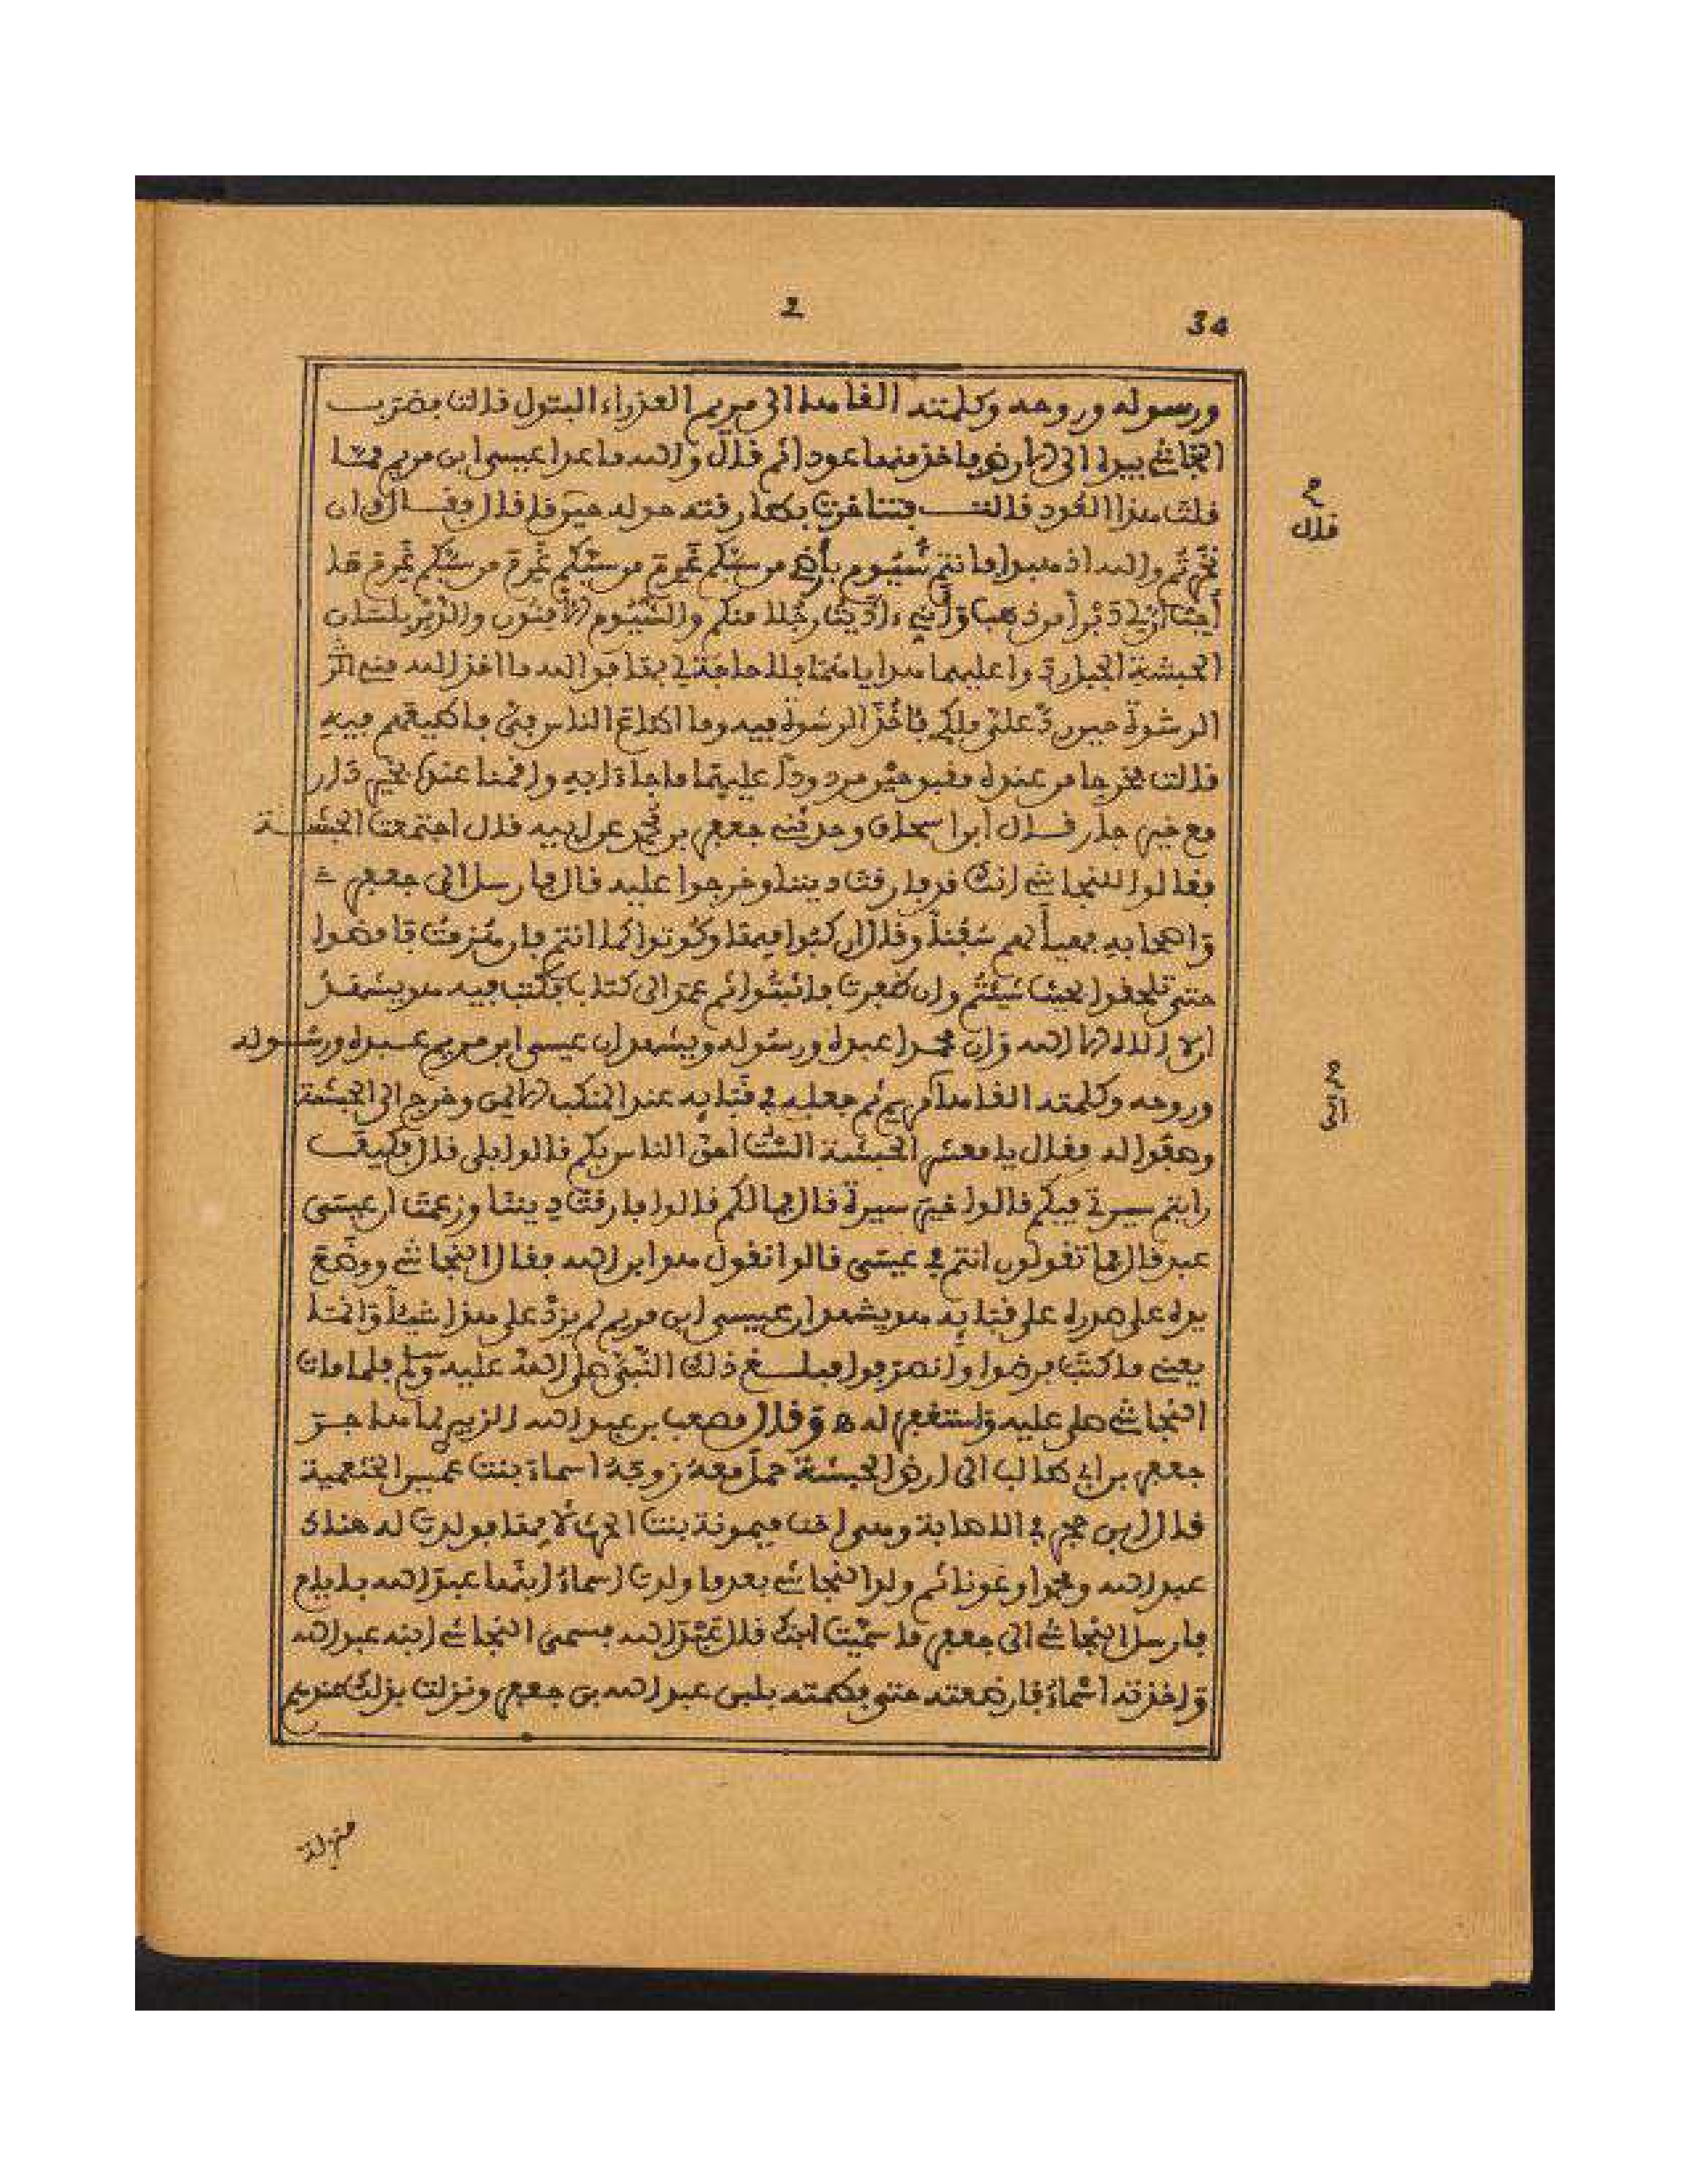 2
34
ورسوله وروحه وكلمته القاها الى مريم العذراء البتول قالت فضرب
النجاشي بيده الى الارض فاخذ منها عودا ثم قال والله ما عدا عيسى ابن مريم مما
قلت هذا العود قالت فتناخرت بطارقته حوله حين قال ما قال فقال وان
نخرتم والله اذهبوا فانتم شيوم بأرضي من سبكم غرم من سبكم غرم من سبكم غرم ما
أحب ان لي دبرا من ذهب وأني ءاذيت رجلا منكم والشيوم الأمنون والدبر بلسان
الحبشة الجبل ردوا عليهما هداياهما فلا حاجة لي بها فوالله ما اخذ الله مني
الرشوة حين رد علي ملكي فآخذ الرشوة فيه وما اطاع الناس في فاطيعهم فيه
قالت فخرجا من عنده مقبوحين مردودا عليهما ما جاءا به واقمنا عنده بخير دار
مع خير جار قال ابن اسحاق وحدثني جعفر بن محمد عن ابيه قال اجتمعت الحبشة
فقالوا للنجاشي انك قد فارقت ديننا وخرجوا عليه قال فارسل الى جعفر
واصحابه فهيأ لهم سفنا وقال اركبوا فيها وكونوا كما انتم فان هزمت فامضوا
حتى تلحقوا بحيث شئتم وان ظفرت فاثبتوا ثم عمد الى كتاب فكتب فيه هو يشهد
ان لا اله الا الله وان محمدا عبده ورسوله ويشهد ان عيسى ابن مريم عبده ورسوله
وروحه وكلمته القاها الى مريم ثم جعله في قبائه عند المنكب الايمن وخرج الى الحبشة
وصفوا له فقال يا معشر الحبشة الست احق الناس بكم قالوا بلى قال فكيف
رايتم سيرتي فيكم قالوا خير سيرة قال فما لكم قالوا فارقت ديننا وزعمت ان عيسى
عبد قال فما تقولون انتم في عيسى قالوا نقول هو ابن الله فقال النجاشي ووضع
يده على صدره على قبائه هو يشهد ان عيسى ابن مريم لم يزد على هذا شيئا وانما
يعني ما كتب فرضوا وانصرفوا فبلغ ذلك النبي صلى الله عليه وسلم فلما مات
النجاشي صلى عليه واستغفر له ه وقال مصعب بن عبد الله الزبير لما هاجر
جعفر بن ابي طالب الى ارض الحبشة حمل معه زوجه اسماء بنت عميس الخثعمية
قال ابن حجر في الاصابة وهي اخت ميمونة بنت الحرث لامها فولدت له هناك
عبد الله ومحمدا وعونا ثم ولد النجاشي بعدما ولدت اسماء ابنها عبد الله بايام
فارسل النجاشي الى جعفر ما سميت ابنك قال عبد الله فسمى النجاشي ابنه عبد الله
واخذته اسماء فارضعته حتى فطمته بلبن عبد الله بن جعفر ونزلت بذلك عندهم
منزلة
قال
الى